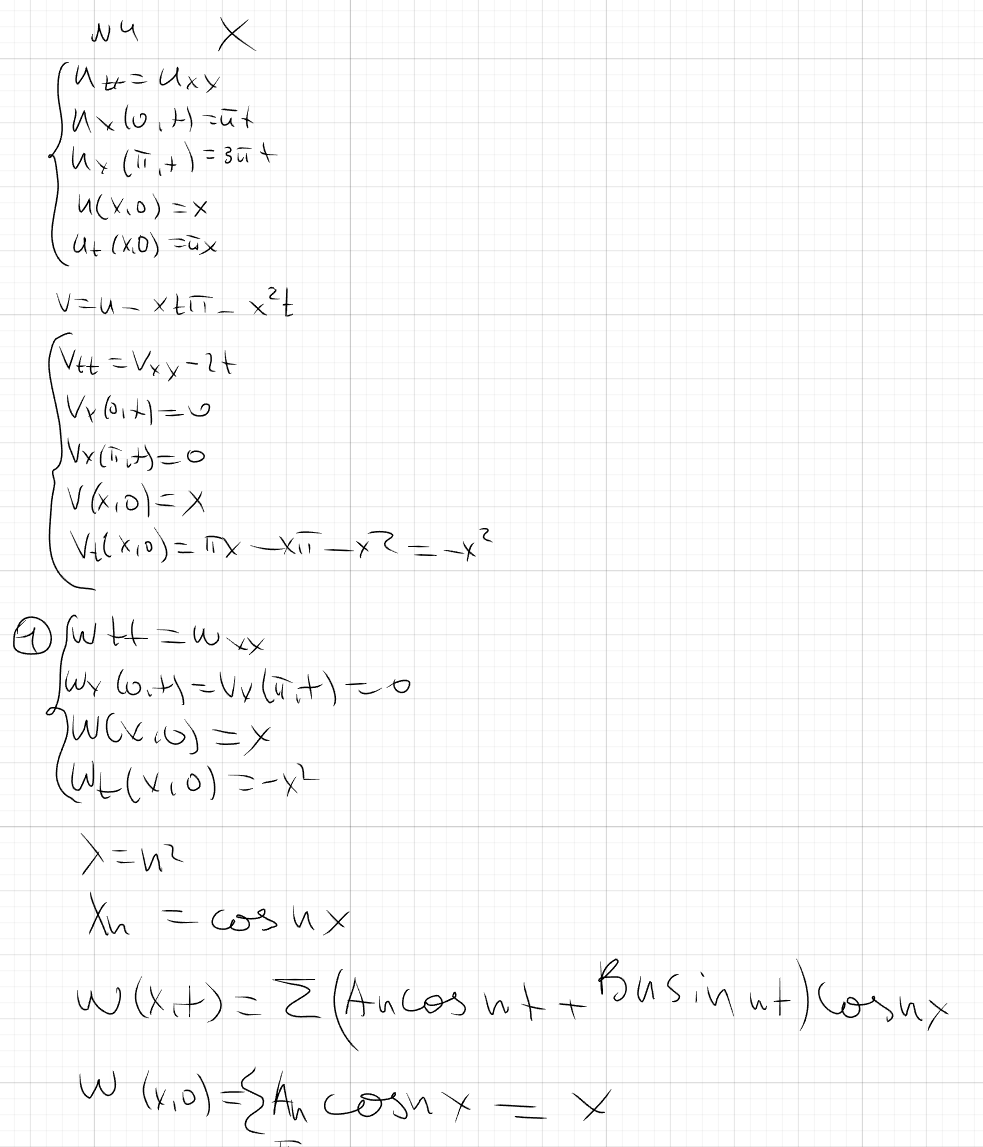 №4 X
u_tt = u_xx
u_x(0,t) = πt
u_x(π,t) = 3πt
u(x,0) = x
u_t(x,0) = πx
v = u - xtπ - x²t
V_tt = V_xx - 2t
V_x(0,t) = 0
V_x(π,t) = 0
V(x,0) = x
V_t(x,0) = πx - xπ - x² = -x²
① w_tt = w_xx
w_x(0,t) = V_x(π,t) = 0
w(x,0) = x
w_t(x,0) = -x²
λ = n²
X_n = cos nx
w(x,t) = Σ(A_n cos nt + B_n sin nt) cos nx
w(x,0) = Σ A_n cos nx = x